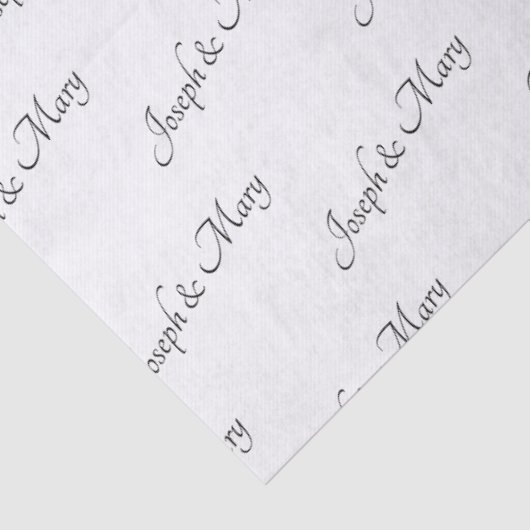 Joseph &
& Mary
Joseph & Mary
oseph & Mary
Mary
ary